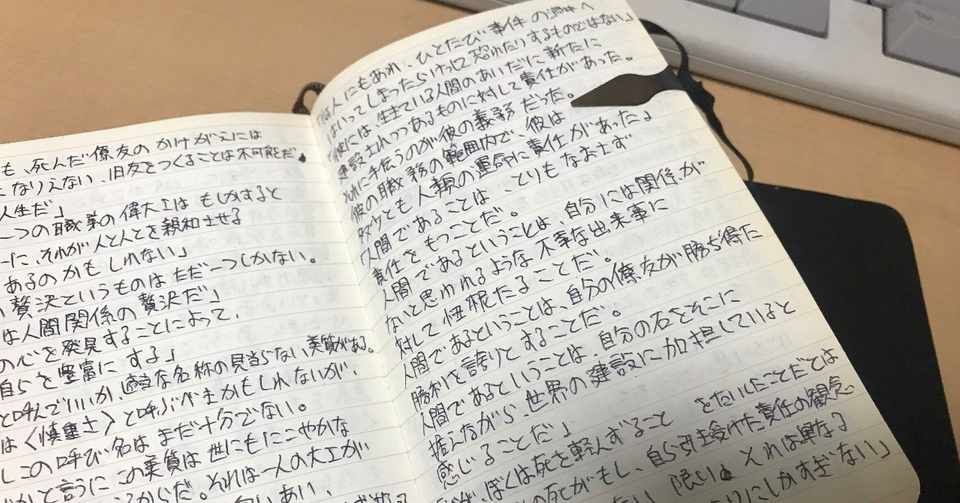 も、死んだ僚友のかけがえには
なりえない、旧友をつくることは不可能だ。
人生だ」
一つの職業の偉大さは もしかすると
一に、それが人と人とを親和させる
あるのかもしれない」
贅沢というものはただ一つしかない。
は人間関係の贅沢だ」
の心を発見することによって、
自らを豊富にする」
と呼んでいいか、適当な名称の見当らない美質がある。
は〈慎重さ〉と呼ぶべきかもしれないが、
しこの呼び名はまだ十分でない。
かと言うに この美質は 世にもにこやかな
るからだ。それは一人の大工が
合い、
何人にもあれ、ひとたび 事件の渦中へ
はいってしまったらけっして恐れたりするものではない」
彼には 生きている人間のあいだに新たに
建設されつつあるものに対して責任があった。
それに手伝うのが彼の義務だった。
彼の職務の範囲内で、彼は
多少とも人類の運命に責任があった」
人間であることは、とりもなおさず
責任をもつことだ。
人間であるということは、自分には関係が
ないと思われるような不幸な出来事に
対して忸怩たることだ。
人間であるということは、自分の僚友が勝ち得た
勝利を誇りとすることだ。
人間であるということは、自分の石をそこに
据えながら、世界の建設に加担していると
感じることだ」
ぼくは死を軽んずること をたいしたことだとは
の死がもし、自ら引き受けた責任の観念
限り、それは異なる
にしかすぎない」